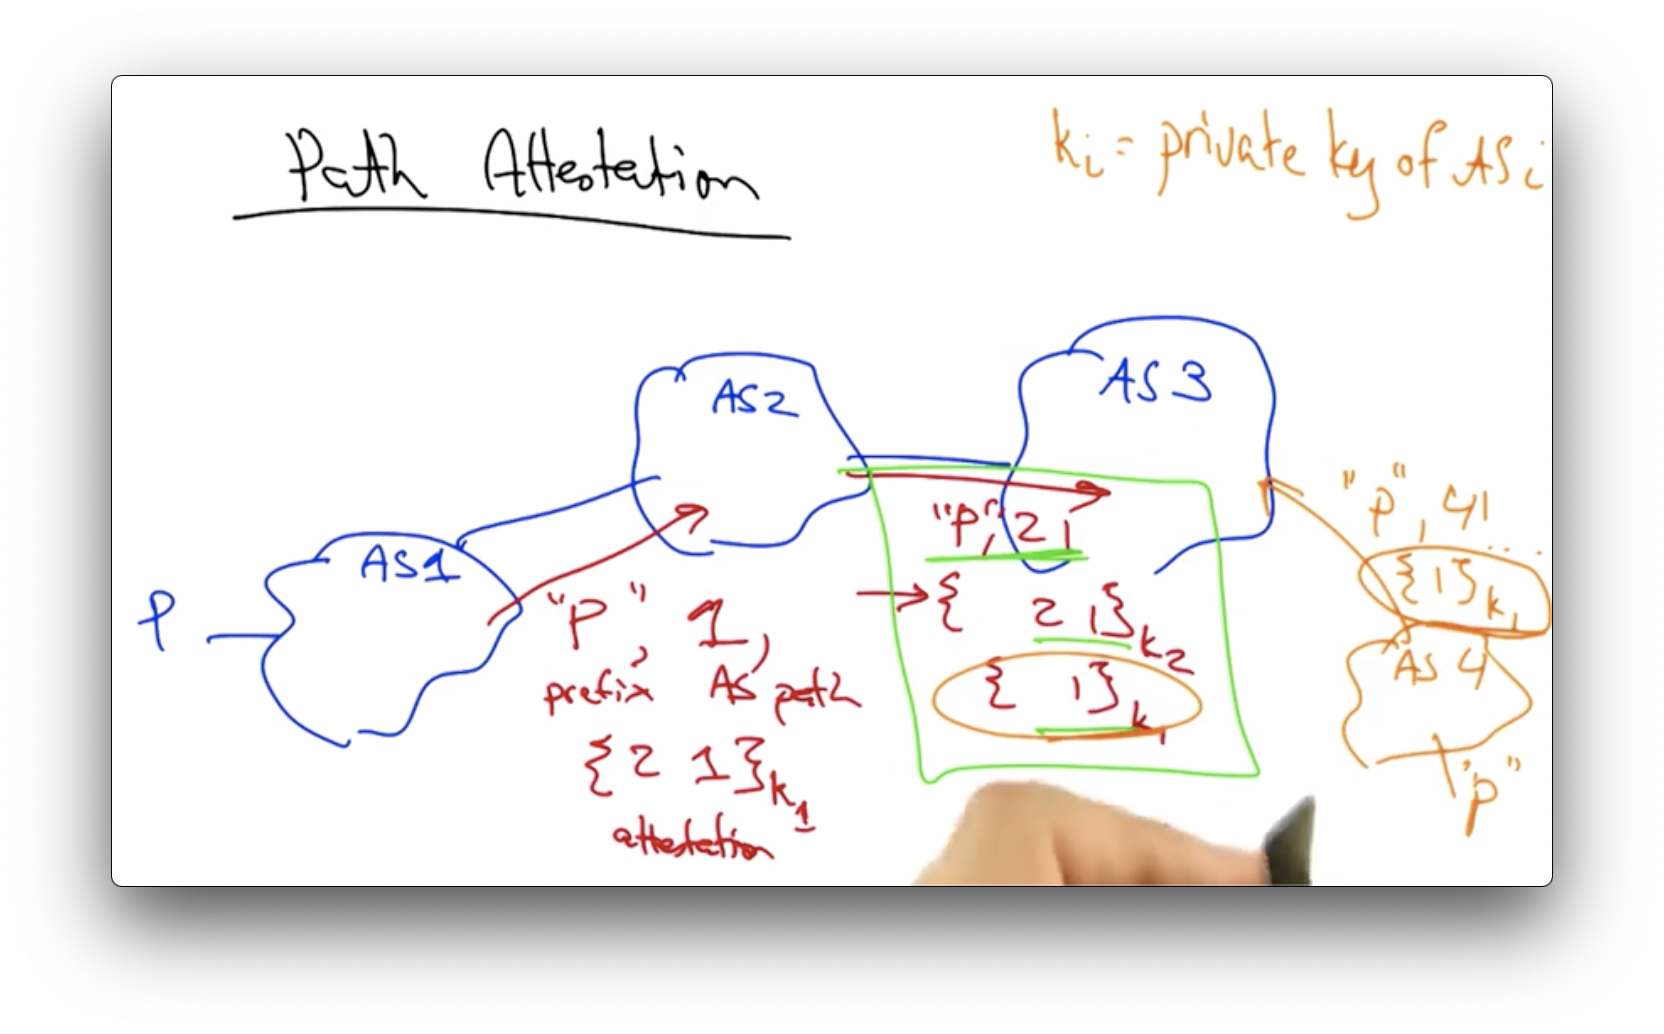 Path Attestation
ki = private key of ASi
AS2
AS3
AS1
P
"P", 1,
prefix AS path
{2 1}k1
attestation
"P", 2 1
{ 2 1}k2
{ 1}k1
"P", 41
{1}k1
AS4
"P"